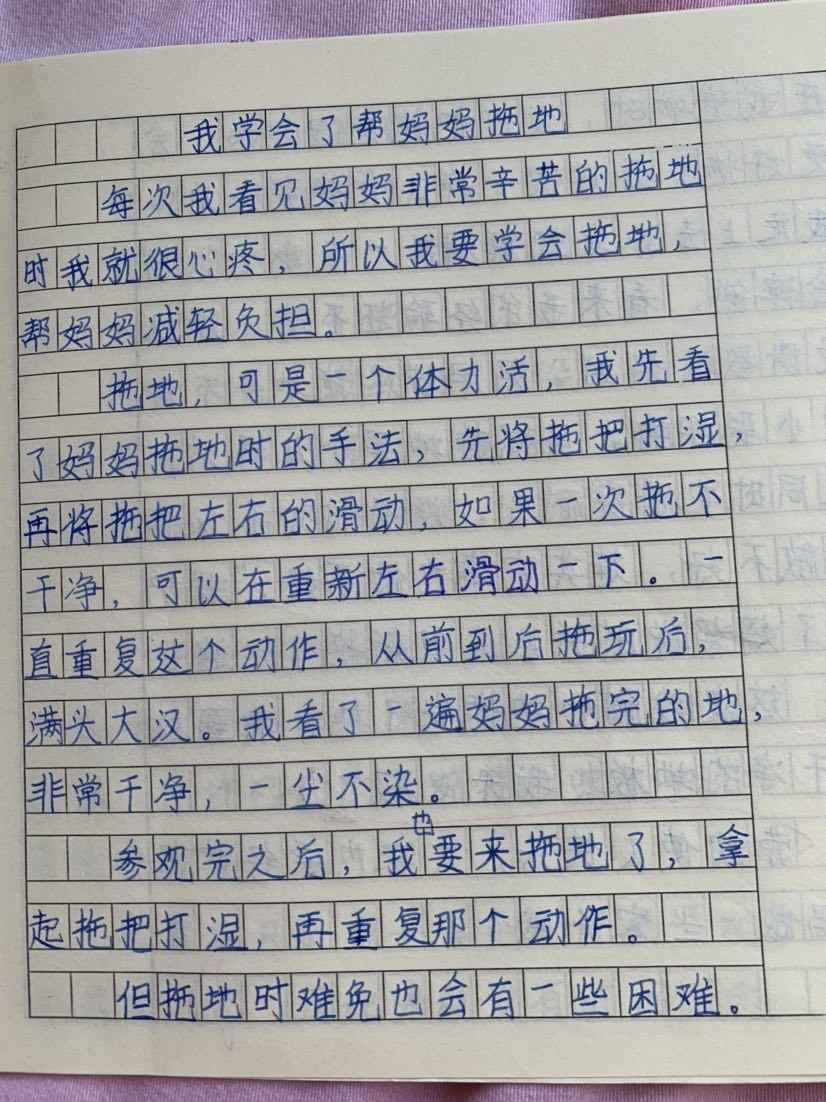 我学会了帮妈妈拖地
每次我看见妈妈非常辛苦的拖地
时我就很心疼，所以我要学会拖地，
帮妈妈减轻负担。
拖地，可是一个体力活，我先看
了妈妈拖地时的手法，先将拖把打湿，
再将拖把左右的滑动，如果一次拖不
干净，可以在重新左右滑动一下。一
直重复这个动作，从前到后拖玩后，
满头大汉。我看了一遍妈妈拖完的地，
非常干净，一尘不染。
参观完之后，我也要来拖地了，拿
起拖把打湿，再重复那个动作。
但拖地时难免也会有一些困难。